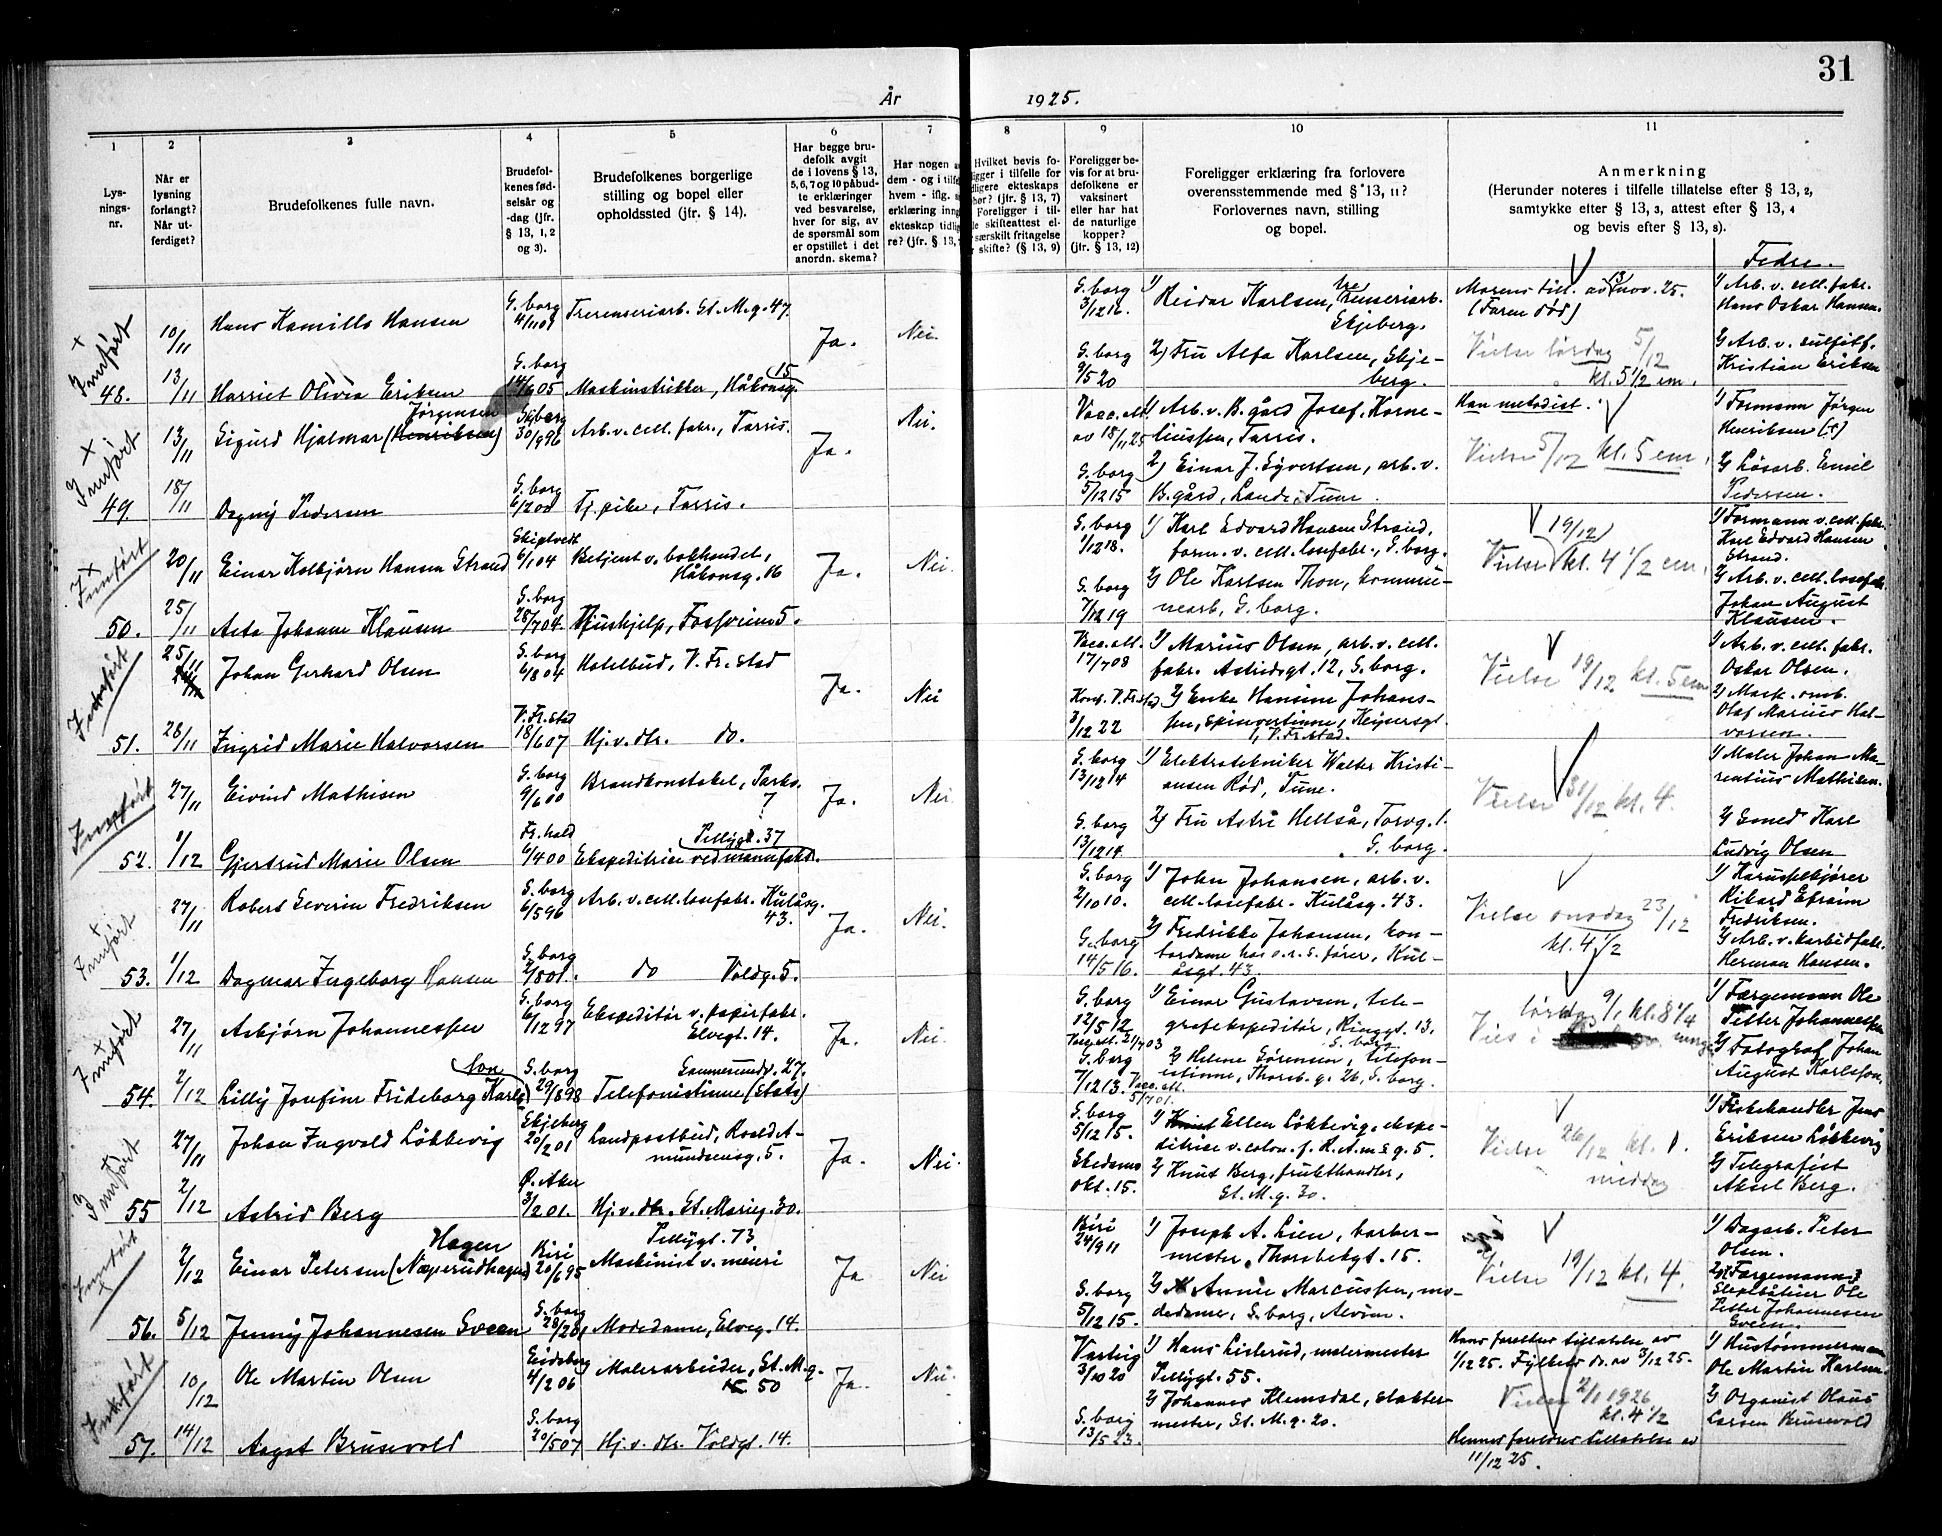 31
År 1925.
1
2
3
4
5
6
7
8
9
10
11
Lys-
nings-
nr.
Når er
lysning
forlangt?
Når ut-
ferdiget?
Brudefolkenes fulle navn.
Brudefol-
kenes fød-
selsår og
-dag (jfr.
§ 13, 1, 2
og 3).
Brudefolkenes borgerlige
stilling og bopel eller
opholdssted (jfr. § 14).
Har begge bru-
defolk avgit
de i lovens § 13,
5, 6, 7 og 10 påbud-
te erklæringer
ved besvarelse,
hver for sig, av
de spørsmål som
er opstillet i det
anordn. skema?
Har nogen a
dem - og i tilfe
hvem - iflg. s
erklæring inng
ekteskap tidlig
re? (jfr. § 13,
Hvilket bevis fo-
ligger i tilfelle for
dligere ekteskaps
hør? (jfr. § 13, 7)
Foreligger i til-
le skifteattest el-
særskilt fritagelse
skifte? (§ 13, 9)
Foreligger be-
vis for at bru-
defolkene er
vaksinert
eller har hat
de naturlige
kopper?
(jfr. § 13, 12)
Foreligger erklæring fra forlovere
overensstemmende med § 13, 11?
Forlovernes navn, stilling
og bopel.
Anmerkning
(Herunder noteres i tilfelle tillatelse efter § 13, 2,
samtykke efter § 13, 3, attest efter § 13, 4
og bevis efter § 13, 8).
Fedre.
Innført
48.
10/11
Hans Kamillo Hansen
S.borg
4/11 01
Trerenseriarb. St. M. g. 47.
Ja.
Nei.
S.borg
3/12 12.
1) Reidar Karlsen, trerenseriarb.
Skjeberg.
Morens till. av 13 nov. 25.
(Faren død)
1) Arb. v. cell. fabr.
Hans Oskar Hansen.
13/11
Harriet Olivia Eriksen
S.borg
14/6 05
Maskinstrikker, Håkonsg. 15
S.borg
9/5 20
2) Fru Alfa Karlsen, Skje-
berg.
Vielse lørdag 5/12
kl. 5 1/2 em.
2) Arb. v. sulfitf.
Kristian Eriksen
Innført
49.
13/11
Sigurd Hjalmar (Henriksen) Jørgensen
30/9 96
Arb. v. cell. fabr., Tarris.
Ja.
Nei.
Vacc. att.
av 18/11 25
1) Arb. v. B. gård Josef Korne-
liussen, Tarris.
Han metodist.
1) Formann Jørgen
Henriksen (†)
18/11
Dagny Pedersen
S.borg
6/2 00
Tj. pike, Tarris.
S.borg
5/12 15
2) Einar J. Syvertsen, arb. v.
B. gård, Lande, Tune.
Vielse 5/12 kl. 5 em.
2) Løsarb. Emil
Pedersen.
Innført
50.
20/11
Einar Kolbjørn Hansen Strand
Skiptvedt
6/1 04
Betjent v. bokhandel,
Håkonsg. 16
Ja.
Nei.
S.borg
1/12 18.
1) Karl Edvard Hansen Strand,
form. v. cell. losefabr., S. borg.
Vielse 19/12 kl. 4 1/2 em.
1) Formann v. cell. fabr.
Karl Edvard Hansen
Strand.
25/11
Asta Johanne Klausen
S.borg
28/7 04.
Hushjelp, Fossveien 5.
S.borg
7/12 19
2) Ole Karlsen Thon, kommu-
nearb, S. borg.
2) Arb. v. cell. losefabr.
Johan August
Klausen.
Innført
51.
25/11
Johan Gerhard Olsen
S.borg
6/8 04
Hotelbud, V. Fr. stad
Ja.
Nei
Vacc. att.
17/7 08
1) Marius Olsen, arb. v. cell.
fabr. Astridsgt. 12, S. borg.
Vielse 19/12 kl. 5 em
1) Arb. v. cell. fabr.
Oskar Olsen.
28/11
Ingrid Marie Halvorsen
V. Fr. stad
18/6 07
Hj. v. do. do.
Konf. V. Fr. stad
3/12 22
2) Enke Hansine Johans-
sen, spinnerinne, Keysersgt.
1, V. Fr. stad.
2) Mask. omb.
Olaf Marius Hal-
vorsen.
Innført
52.
27/11
Eivind Mathisen
S.borg
9/6 00
Brandkonstabel, Parkv.
7
Ja.
Nei.
S.borg
13/12 14
1) Elektrotekniker Walter Kristi-
ansen Rød, Tune.
Vielse 31/12 kl. 4.
1) Maler Johan Ma-
rentius Mathisen.
1/12
Gjertrud Marie Olsen
Fr. hald
6/4 00
Ekspeditrise ved mannfakt.
Pellygt. 37
S.borg
13/12 14
2) Fru Astri Hellså, Torvg. 1.
S. borg.
2) Smed Karl
Ludvig Olsen
Innført
53.
27/11
Robert Severin Fredriksen
S.borg
6/5 96
Arb. v. cell. losefabr. Kulåsg.
43.
Ja.
Nei.
S.borg
2/10 10.
1) John Johansen, arb. v.
cell. losefabr. Kulåsg. 43.
Vielse onsdag 23/12
kl. 4 1/2
1) Karusselkjører
Rikard Efraim
Fredriksen.
1/12
Dagmar Ingeborg Hansen
S.borg
2/8 01.
do Voldg. 5.
S.borg
14/5 16.
2) Fredrikke Johansen, kon-
tordame hos o.r.s. fører, Kul-
åsgt. 43.
2) Arb. v. karbidfabr.
Herman Hansen.
Innført
54.
27/11
Asbjørn Johannessen
S.borg
6/12 97
Ekspeditør v. papirfabr.
Elvegt. 14.
Ja.
Nei.
S.borg
12/5 12
1) Einar Gustavsen, tele-
grafekspeditør, Ringgt. 13.
S. borg
lørdag 9/1 kl. 8 1/4
Vies i
1) Færgemann Ole
Petter Johannessen
2/12
Lilly Josefine Frideborg Karlsson
S.borg
29/8 98
Telefonistinne (Stats)
S.borg
7/12 13.
2) Helene Sørensen, telefon-
istinne, Thorsb. g. 26, S. borg.
2) Fotograf Johan
August Karlsson.
Innført
55
27/11
Johan Ingvald Løkkevig
Skjeberg
20/2 01
Landpostbud, Roald A-
mundsensg. 5.
Ja.
Nei.
S.borg
5/12 15.
1) Ellen Løkkevig, ekspe-
ditrise v. colon. f. R. A. m s g. 5.
Vielse 26/12 kl. 1.
middag
1) Fiskehandler Jens
Eriksen Løkkevig
2/12
Astrid Berg
Ø. Aker
3/2 01.
Hj. v. do. St. Marieg. 30.
Skedsmo
okt. 15.
2) Knut Berg, frukthandler,
St. M. g. 30.
2) Telegrafist
Aksel Berg.
Innført
56.
2/12
Einar Petersen (Næperudhagen) Hagen
Biri
20/6 95
Maskinist v. meieri
Pellygt. 73
Ja
Nei
Biri
24/9 11
1) Joseph A. Lien, barber-
mester, Thorsbekgt. 15.
Vielse 19/12 kl. 4.
1) Dagarb. Peter
Olsen.
5/12
Jenny Johannesen Sveen
S.borg
Modedame, Elveg. 14.
S.borg
5/12 15.
2) Annie Marcussen, mo-
dedame, S. borg, Alvim.
2) Færgemann
Ole
Petter Johannesen
Sveen.
Innført
57.
10/12
Ole Martin Olsen
Eidsberg
4/2 06
Malerarbeider, St. M. g.
50
Ja.
Nei.
Varteig
3/10 20
1) Hans Lislerud, malermester
Pellygt. 55.
Hans foreldres tillatelse av
1/12 25. Fylkets do. av 3/12 25.
Vielse 2/1 1926
kl. 4 1/2
1) Hustømmermann
Ole Martin Karlsen
14/12
Aagot Brunvold
S.borg
20/5 07
Hj. v. do. Voldgt. 14.
S.borg
13/5 23.
2) Johannes Klemsdal, slakter-
mester, St. M. g. 20.
Hennes foreldres tillatelse av
11/12 25.
2) Organist Olaus
Larsen Brunvold